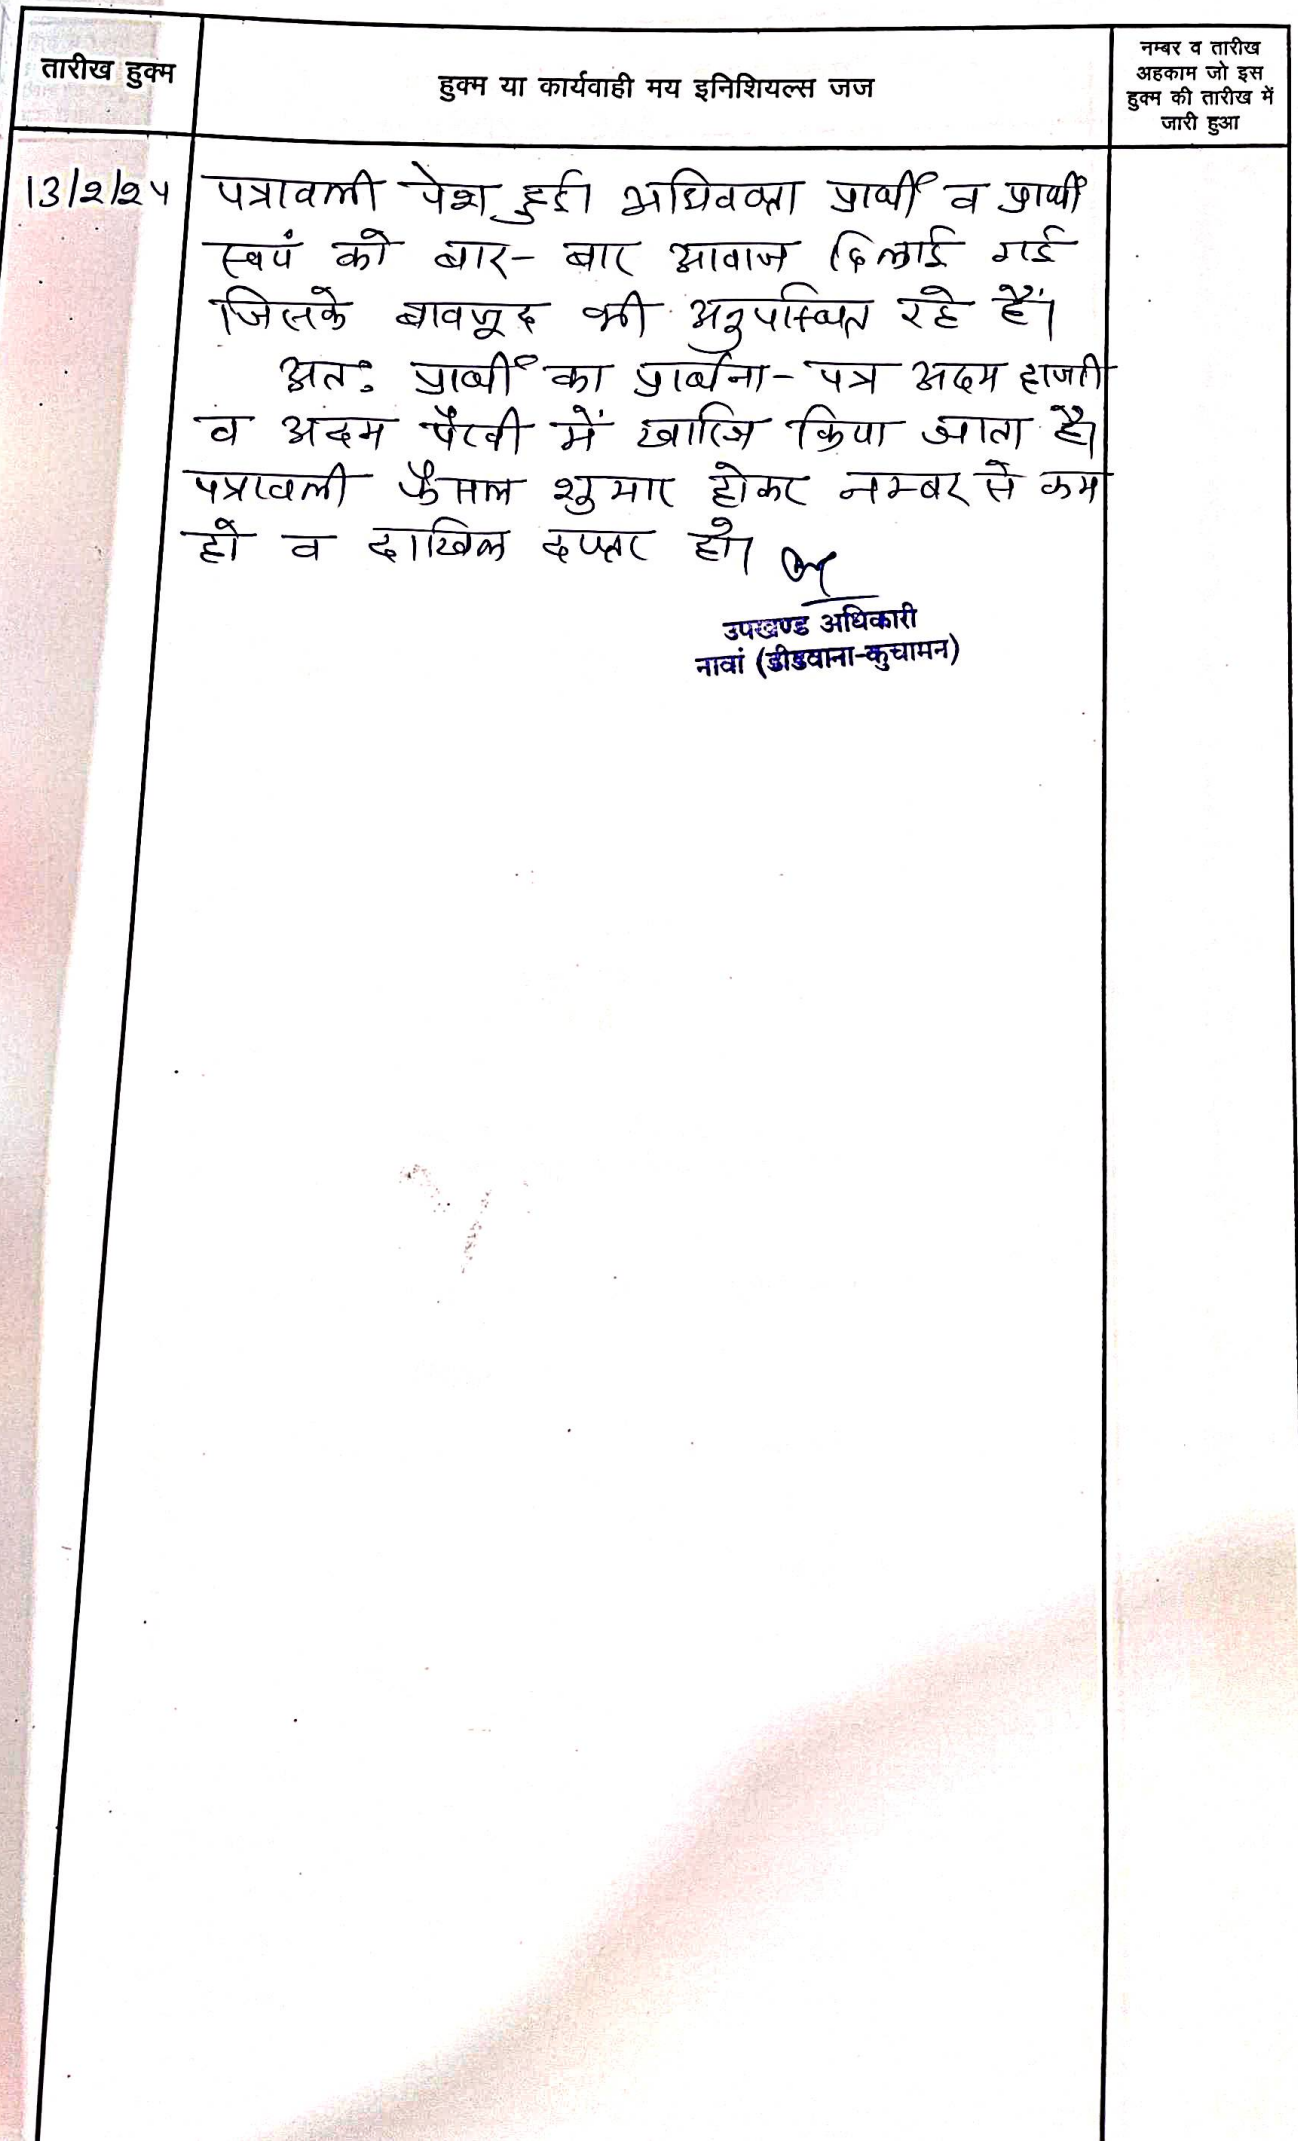 तारीख हुक्म
हुक्म या कार्यवाही मय इनिशियल्स जज
नम्बर व तारीख
अहकाम जो इस
हुक्म की तारीख में
जारी हुआ
13/2/25
पत्रावली पेश हुई। अधिवक्ता प्रार्थी व प्रार्थी
स्वयं को बार-बार आवाज दिलाई गई
जिसके बावजूद भी अनुपस्थित रहे हैं।
अतः प्रार्थी का प्रार्थना-पत्र अदम हाजरी
व अदम पैरवी में खारिज किया जाता है।
पत्रावली फैसल शुमार होकर नम्बर से कम
हो व दाखिल दफ्तर हो।
उपखण्ड अधिकारी
नावां (डीडवाना-कुचामन)